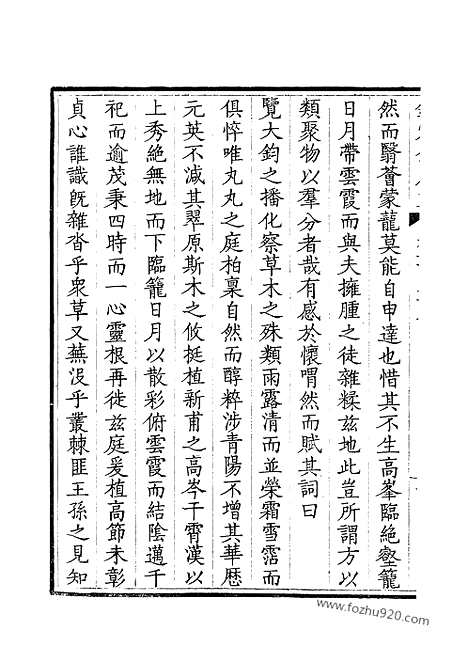 然而翳薈蒙蘢莫能自申達也惜其不生高峯臨絶壑籠
日月帶雲霞而與夫擁腫之徒雜糅兹地此豈所謂方以
類聚物以羣分者哉有感於懷喟然而賦其詞曰
覽大鈞之播化察草木之殊類雨露清而並榮霜雪霑而
俱悴唯丸丸之庭柏稟自然而醇粹涉青陽不增其華厯
元英不減其翠原斯木之攸挺植新甫之高岑干霄漢以
上秀絶無地而下臨籠日月以散彩俯雲霞而結陰邁千
祀而逾茂秉四時而一心靈根再徙兹庭爰植高節未彰
貞心誰識旣雜沓乎衆草又蕪沒乎叢棘匪王孫之見知
www.fozhu920.com